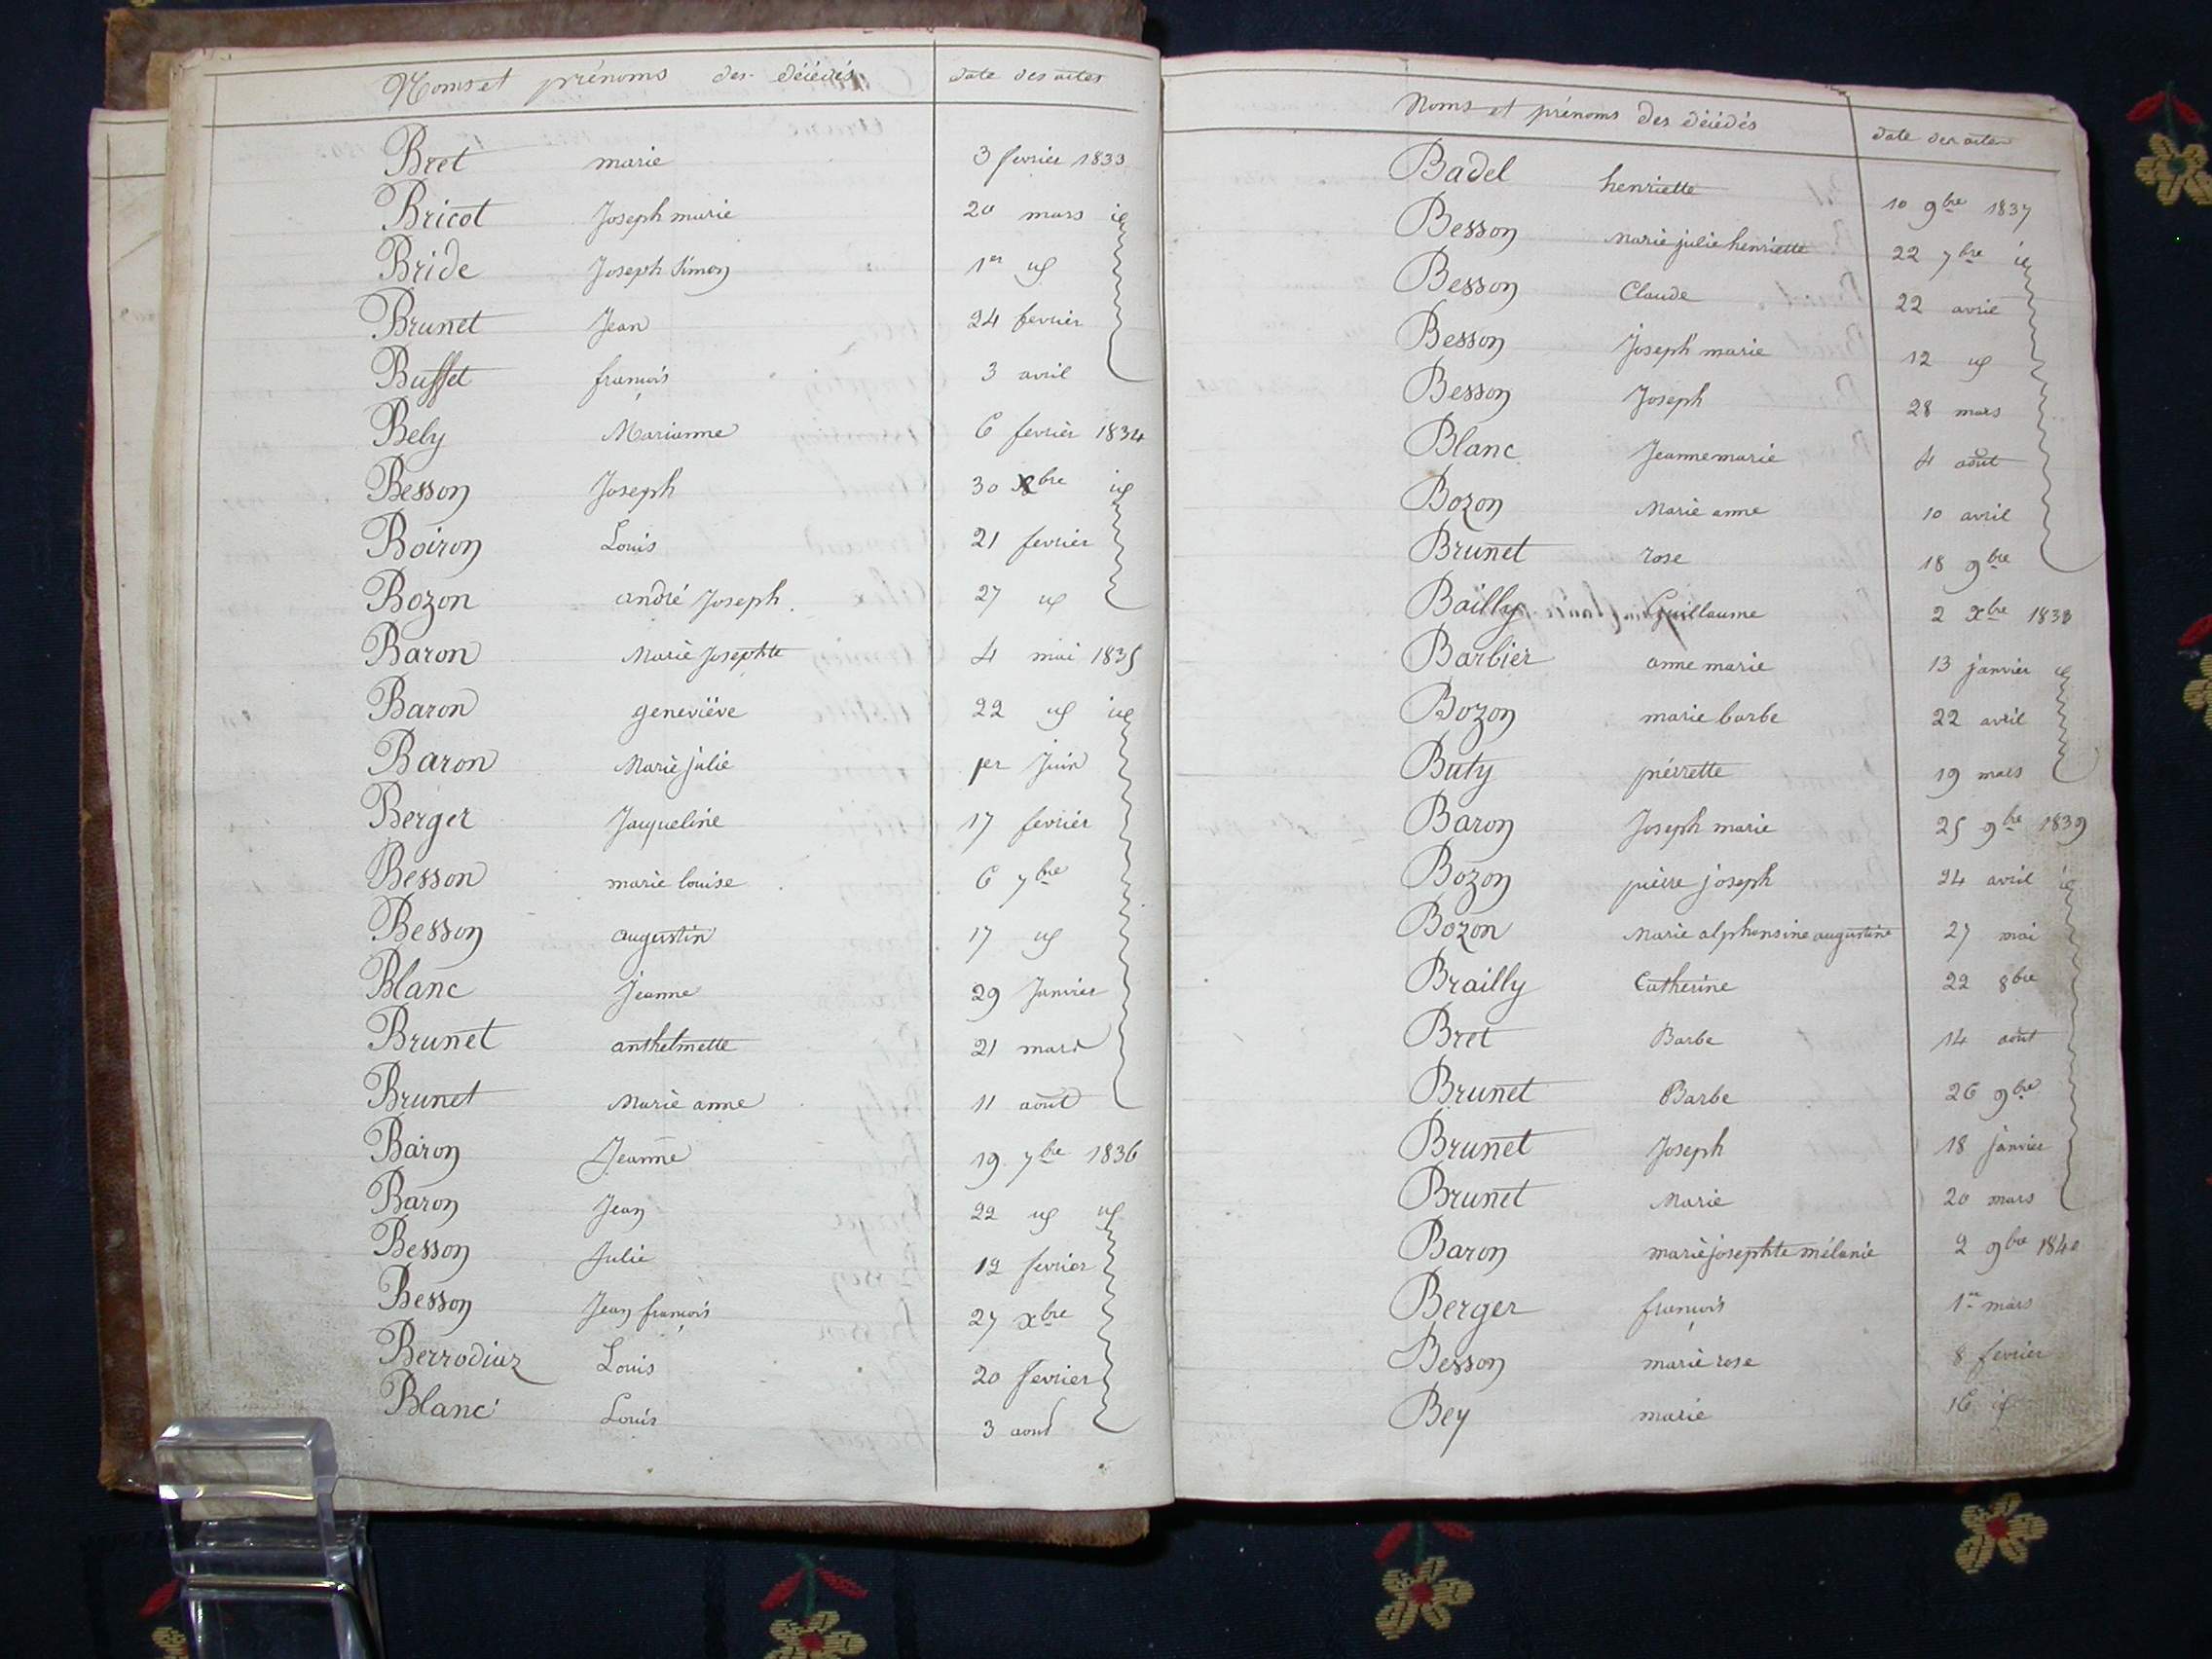 Noms et prénoms des décédés date des actes
Bret marie 3 fevrier 1833
Bricot Joseph marie 20 mars id
Bride Joseph Simon 1er id
Brunet Jean 24 fevrier
Buffet françois 3 avril
Bely Marianne 6 fevrier 1834
Besson Joseph 30 xbre id
Boiron Louis 21 fevrier
Bozon andré Joseph 27 id
Baron Marie Josephte 4 mai 1835
Baron geneviève 22 id id
Baron Marie julie 1er Juin
Berger Jacqueline 17 fevrier
Besson marie louise 6 7bre
Besson augustin 17 id
Blanc jeanne 29 Janvier
Brunet anthelmette 21 mars
Brunet Marie anne 11 août
Baron Jeanne 19 7bre 1836
Baron Jean 22 id id
Besson Julie 12 fevrier
Besson Jean françois 27 xbre
Berrodiaz Louis 20 fevrier
Blanc Louis 3 aout
Noms et prénoms des décédés date des actes
Badel henriette 10 9bre 1837
Besson Marie julie henriette 22 7bre id
Besson Claude 22 avril
Besson Joseph marie 12 id
Besson Joseph 28 mars
Blanc Jeanne marie 4 août
Bozon Marie anne 10 avril
Brunet rose 18 9bre
Bailly Guillaume 2 xbre 1838
Barbier anne marie 13 janvier id
Bozon marie barbe 22 avril
Buty pierrette 19 mars
Baron Joseph marie 25 9bre 1839
Bozon pierre joseph 24 avril id
Bozon Marie alphonsine augustine 27 mai
Brailly Catherine 22 8bre
Bret Barbe 14 août
Brunet Barbe 26 9bre
Brunet Joseph 18 janvier
Brunet Marie 20 mars
Baron marie josephte mélanie 2 9bre 1840
Berger françois 1er mars
Besson marie rose 8 fevrier
Bey marie 16 id